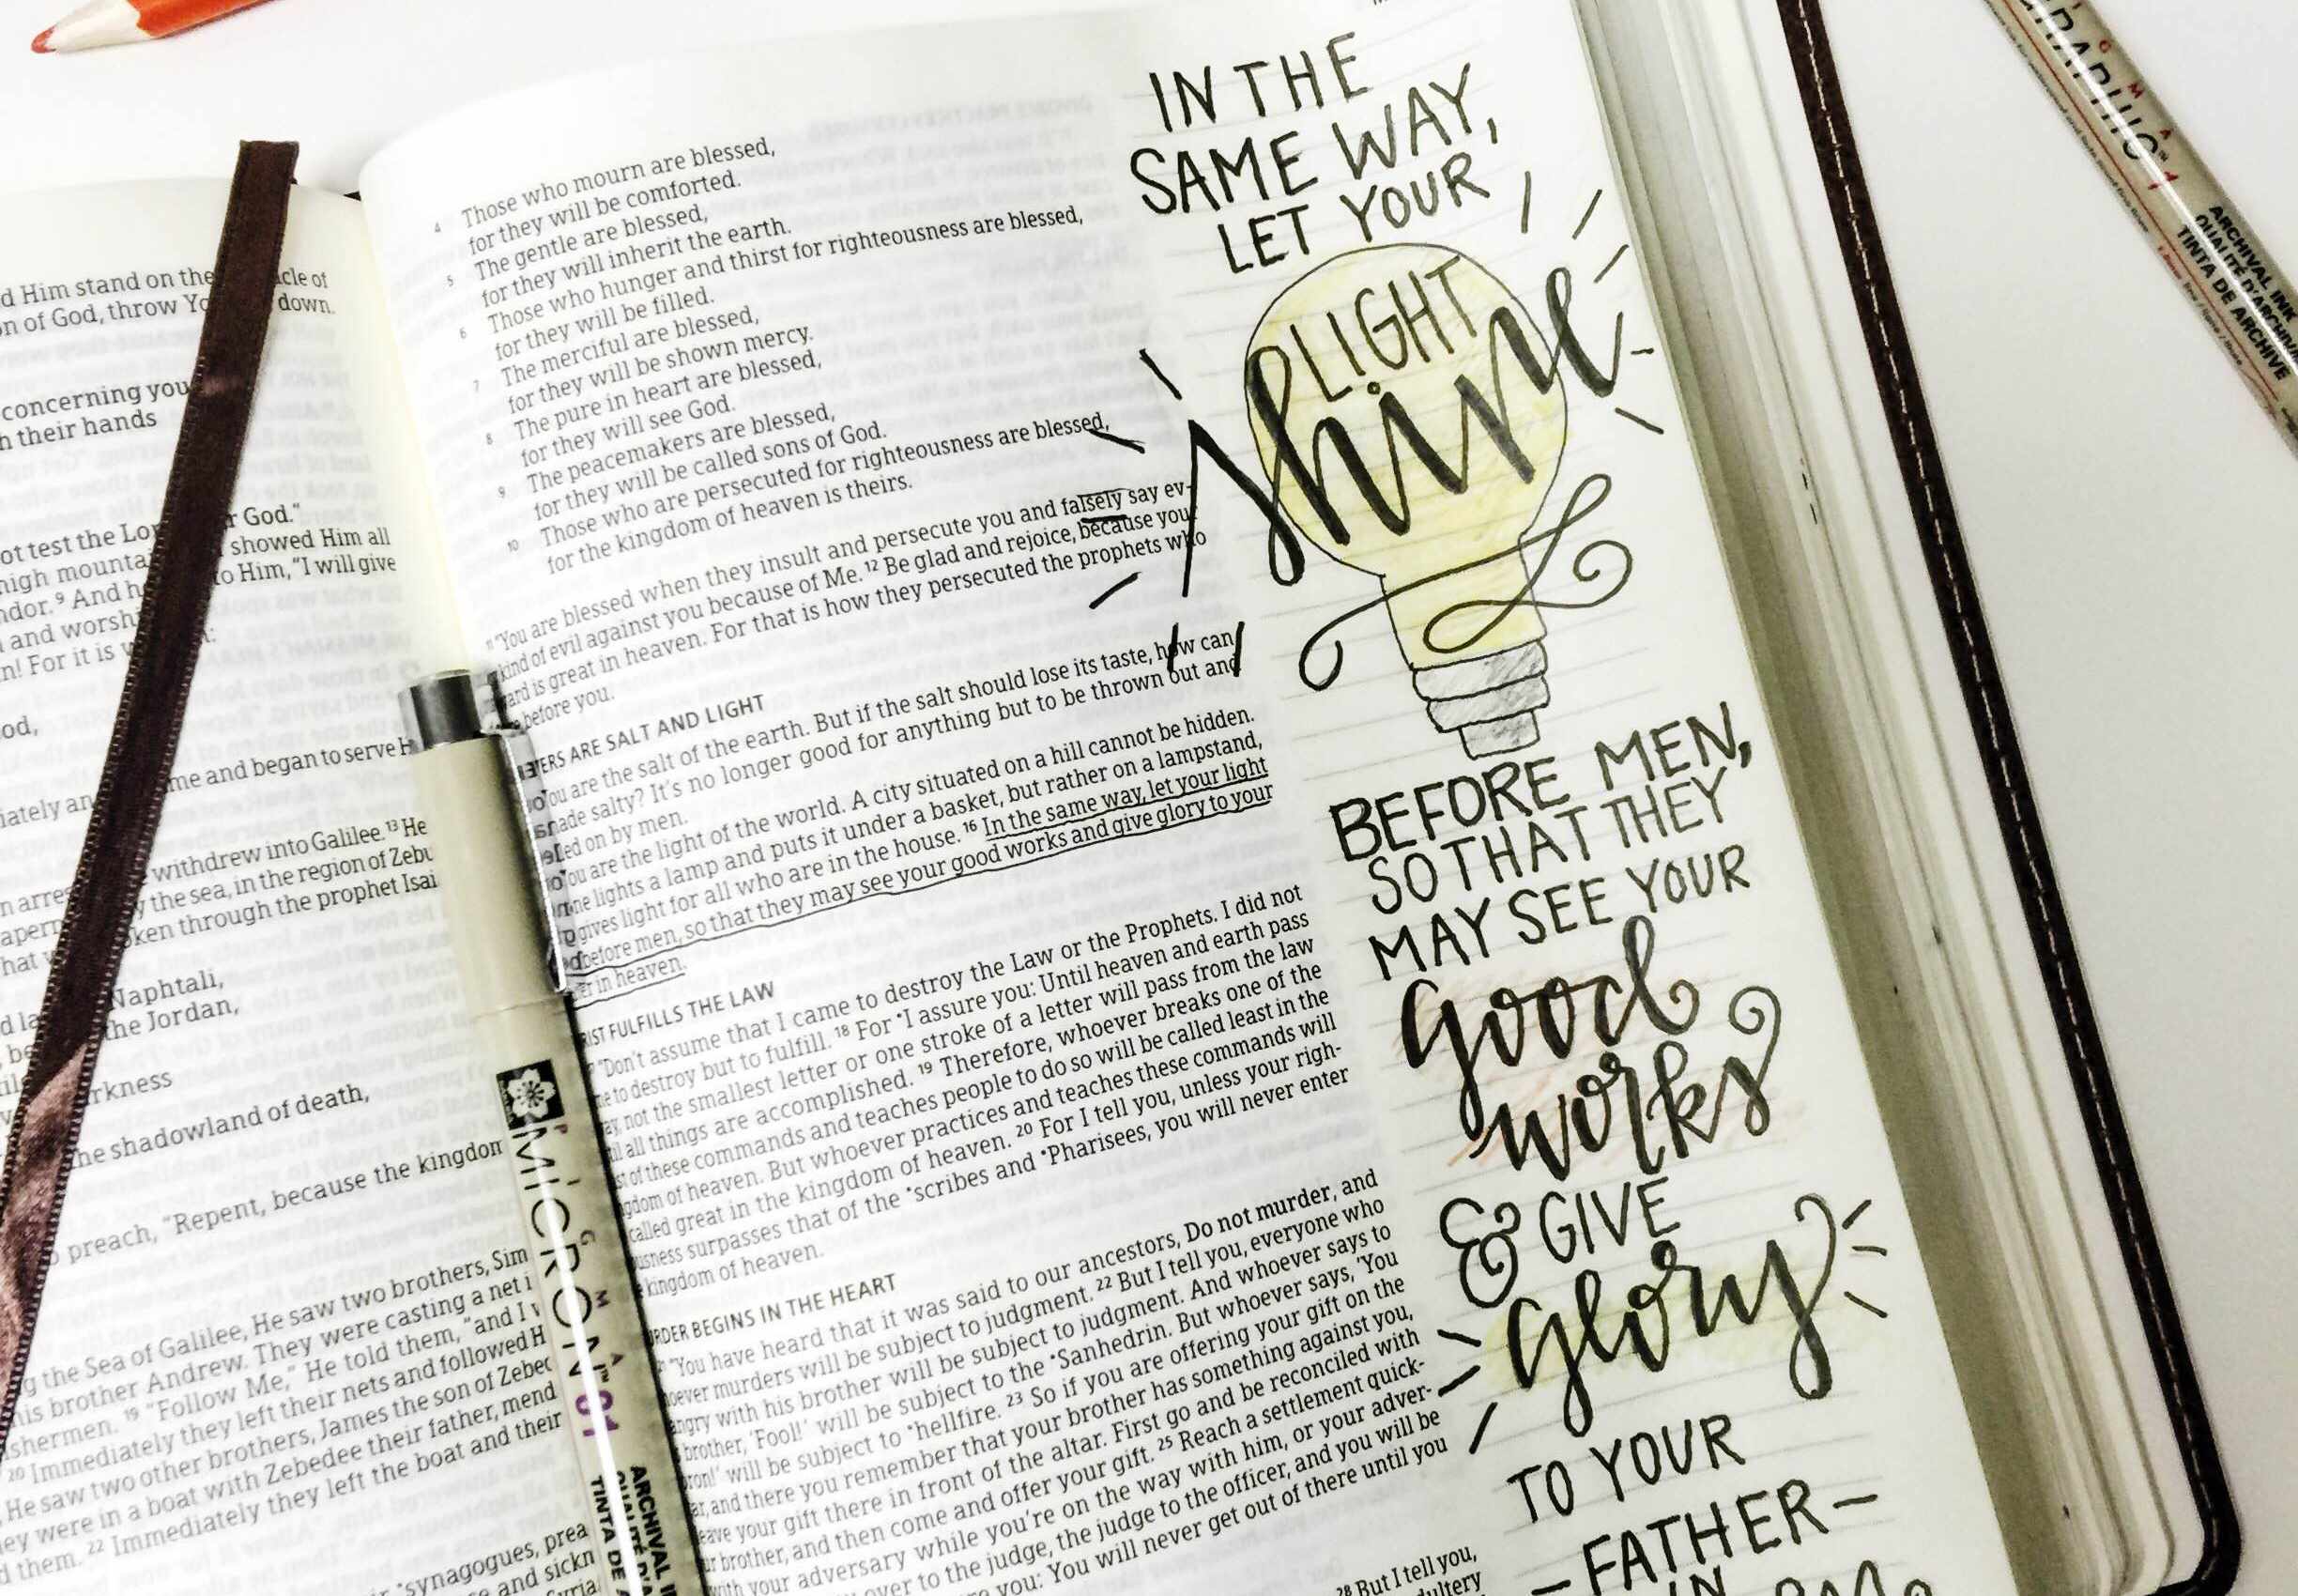 d Him stand on the
cle of
n of God, throw Yo
down.
concerning you
h their hands
ot test the Lor
r God."
high mounta
showed Him all
ndor. ⁹ And h
to Him, "I will give
and worsh
n! For it is
od,
me and began to serve H
iately an
withdrew into Galilee. ¹³ He
n arre
y the sea, in the region of Zebu
apern
ken through the prophet Isai
hat
Naphtali,
the Jordan,
rkness
he shadowland of death,
preach, "Repent, because the kingdon
g the Sea of Galilee, He saw two brothers, Sim
his brother Andrew. They were casting a net i
shermen. ¹⁹ "Follow Me," He told them, "and I
²⁰ Immediately they left their nets and followed H
He saw two other brothers, James the son of Zebed
ey were in a boat with Zebedee their father, mend
d them. ²² Immediately they left the boat and their
*synagogues, prea
and sickn
Syria
4 Those who mourn are blessed,
for they will be comforted.
5 The gentle are blessed,
for they will inherit the earth.
6 Those who hunger and thirst for righteousness are blessed,
for they will be filled.
7 The merciful are blessed,
for they will be shown mercy.
8 The pure in heart are blessed,
for they will see God.
9 The peacemakers are blessed,
for they will be called sons of God.
10 Those who are persecuted for righteousness are blessed,
for the kingdom of heaven is theirs.
¹¹ "You are blessed when they insult and persecute you and falsely say ev-
kind of evil against you because of Me. ¹² Be glad and rejoice, because you
ard is great in heaven. For that is how they persecuted the prophets who
before you.
ERS ARE SALT AND LIGHT
ou are the salt of the earth. But if the salt should lose its taste, how can
made salty? It's no longer good for anything but to be thrown out and
led on by men.
ou are the light of the world. A city situated on a hill cannot be hidden.
ne lights a lamp and puts it under a basket, but rather on a lampstand,
gives light for all who are in the house. ¹⁶ In the same way, let your light
before men, so that they may see your good works and give glory to your
er in heaven.
IST FULFILLS THE LAW
"Don't assume that I came to destroy the Law or the Prophets. I did not
e to destroy but to fulfill. ¹⁸ For *I assure you: Until heaven and earth pass
ay, not the smallest letter or one stroke of a letter will pass from the law
il all things are accomplished. ¹⁹ Therefore, whoever breaks one of the
st of these commands and teaches people to do so will be called least in the
gdom of heaven. But whoever practices and teaches these commands will
called great in the kingdom of heaven. ²⁰ For I tell you, unless your righ-
usness surpasses that of the *scribes and *Pharisees, you will never enter
kingdom of heaven.
RDER BEGINS IN THE HEART
"You have heard that it was said to our ancestors, Do not murder, and
oever murders will be subject to judgment. ²² But I tell you, everyone who
angry with his brother will be subject to judgment. And whoever says to
brother, 'Fool!' will be subject to the *Sanhedrin. But whoever says, 'You
ron!' will be subject to *hellfire. ²³ So if you are offering your gift on the
ar, and there you remember that your brother has something against you,
eave your gift there in front of the altar. First go and be reconciled with
ur brother, and then come and offer your gift. ²⁵ Reach a settlement quick-
with your adversary while you're on the way with him, or your adver-
over to the judge, the judge to the officer, and you will be
you: You will never get out of there until you
²⁸ But I tell you,
dultery
IN THE
SAME WAY,
LET YOUR
LIGHT
shine
BEFORE MEN,
SO THAT THEY
MAY SEE YOUR
good
works
& GIVE
glory
TO YOUR
-FATHER-
IN
PIGMA
MICRON™ 01
ARCHIVAL I
QUALITÉ D'A
TINTA DE A
GRAPHIC™ 1
ARCHIVAL INK
QUALITÉ D'ARCHIVE
TINTA DE ARCHIVE